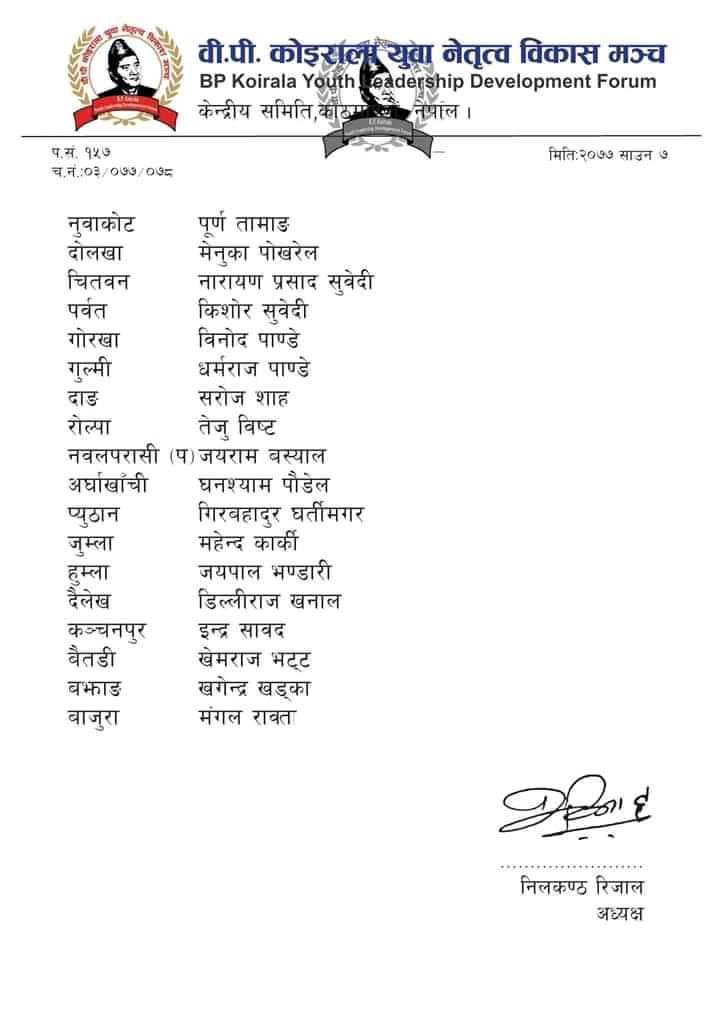 वी.पी. कोइराला युवा नेतृत्व विकास मञ्च
BP Koirala Youth Leadership Development Forum
केन्द्रीय समिति,काठमाण्डौ नेपाल ।
प.सं. १५७
मिति:२०७७ साउन ७
च.नं.:०३/०७७/०७८
नुवाकोट पूर्ण तामाङ
दोलखा मेनुका पोखरेल
चितवन नारायण प्रसाद सुवेदी
पर्वत किशोर सुवेदी
गोरखा विनोद पाण्डे
गुल्मी धर्मराज पाण्डे
दाङ सरोज शाह
रोल्पा तेजु विष्ट
नवलपरासी (प) जयराम बस्याल
अर्घाखाँची घनश्याम पौडेल
प्युठान गिरबहादुर घर्तीमगर
जुम्ला महेन्द कार्की
हुम्ला जयपाल भण्डारी
दैलेख डिल्लीराज खनाल
कञ्चनपुर इन्द्र सावद
बैतडी खेमराज भट्ट
बझाङ खगेन्द्र खड्का
बाजुरा मंगल रावत
निलकण्ठ रिजाल
अध्यक्ष